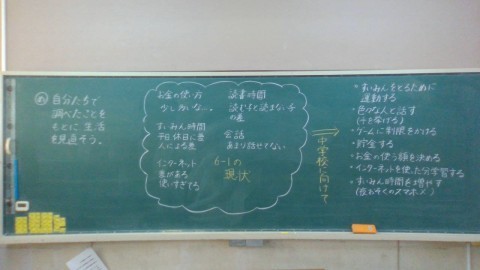 め 自分たちで
調べたことを
もとに生活
を見直そう。
お金の使い方
少しあぶない。
すいみん時間
平日休日に差
人による差
インターネット
差がある
使いすぎてる
読書時間
読む子と読まない子
の差
会話
あまり話せてない
6-1の
現状
中学校に向けて
・すいみんをとるために
運動する
・色々な人と話す
(手を挙げる)
・ゲームに制限をかける
・貯金する
・お金の使う額を決める
・インターネットを使った分学習する
・すいみん時間を増やす
(夜おそくのスマホ×)